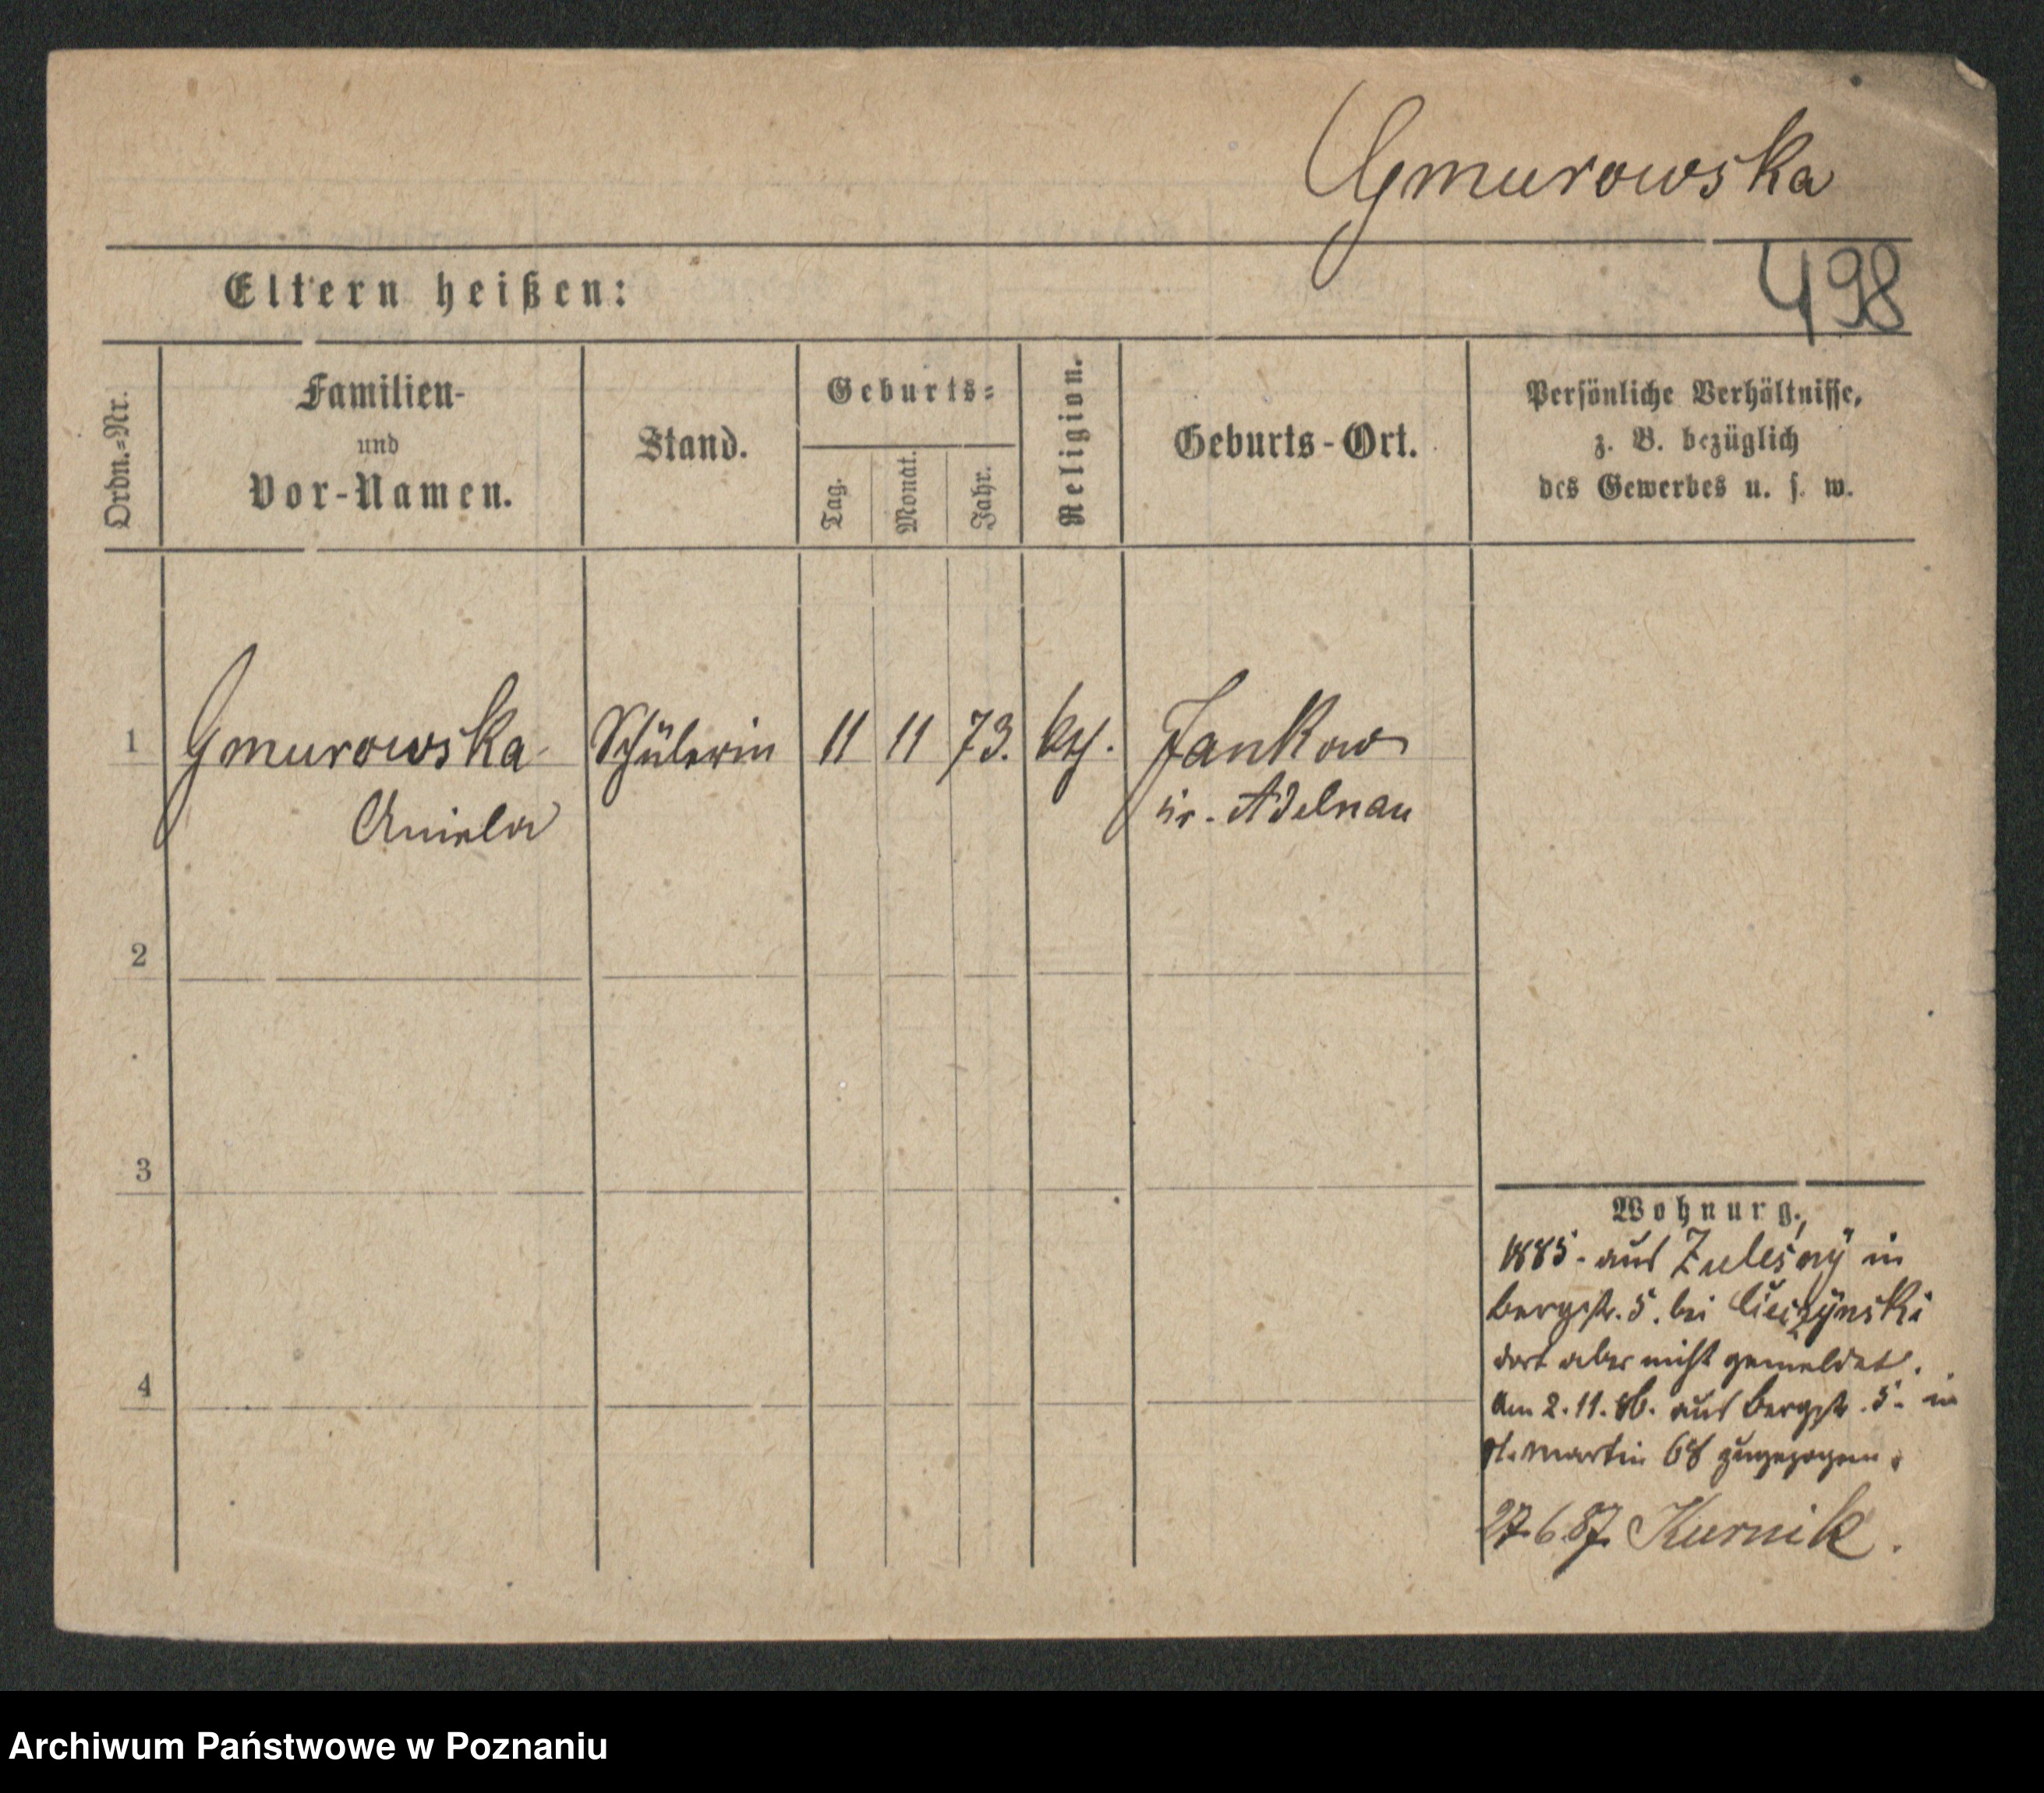 Gmurowska
498
Eltern heißen:
Ordn.=Nr.
Familien-
und
Vor-Namen.
Stand.
Geburts=
Tag.
Monat.
Jahr.
Religion.
Geburts-Ort.
Persönliche Verhältnisse,
z. B. bezüglich
des Gewerbes u. s. w.
1 Gmurowska Schülerin 11 11 73. kth. Jankow
Aniela Kr. Adelnau
2
3
4
Wohnung.
1885. aus in
Bergstr. 5. bei Cieczynski
dort aber nicht gemeldet.
Am 2.11.86. aus Bergstr. 5. in
St. Martin 68 zugezogen.
27.6.87. Kurnik.
Archiwum Państwowe w Poznaniu